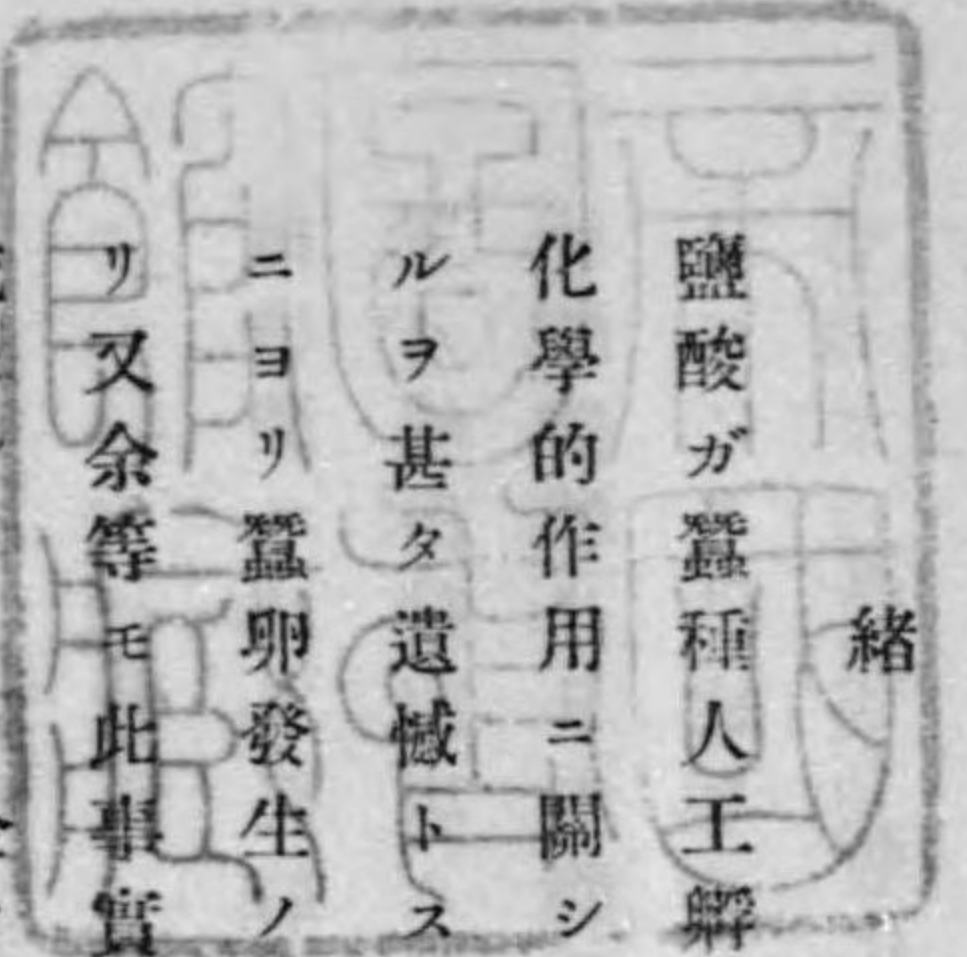 緒
鹽酸ガ蠶種人工孵
化學的作用ニ關シ
ルヲ甚タ遺憾トス
ニヨリ蠶卵發生ノ
リ又余等モ此事實